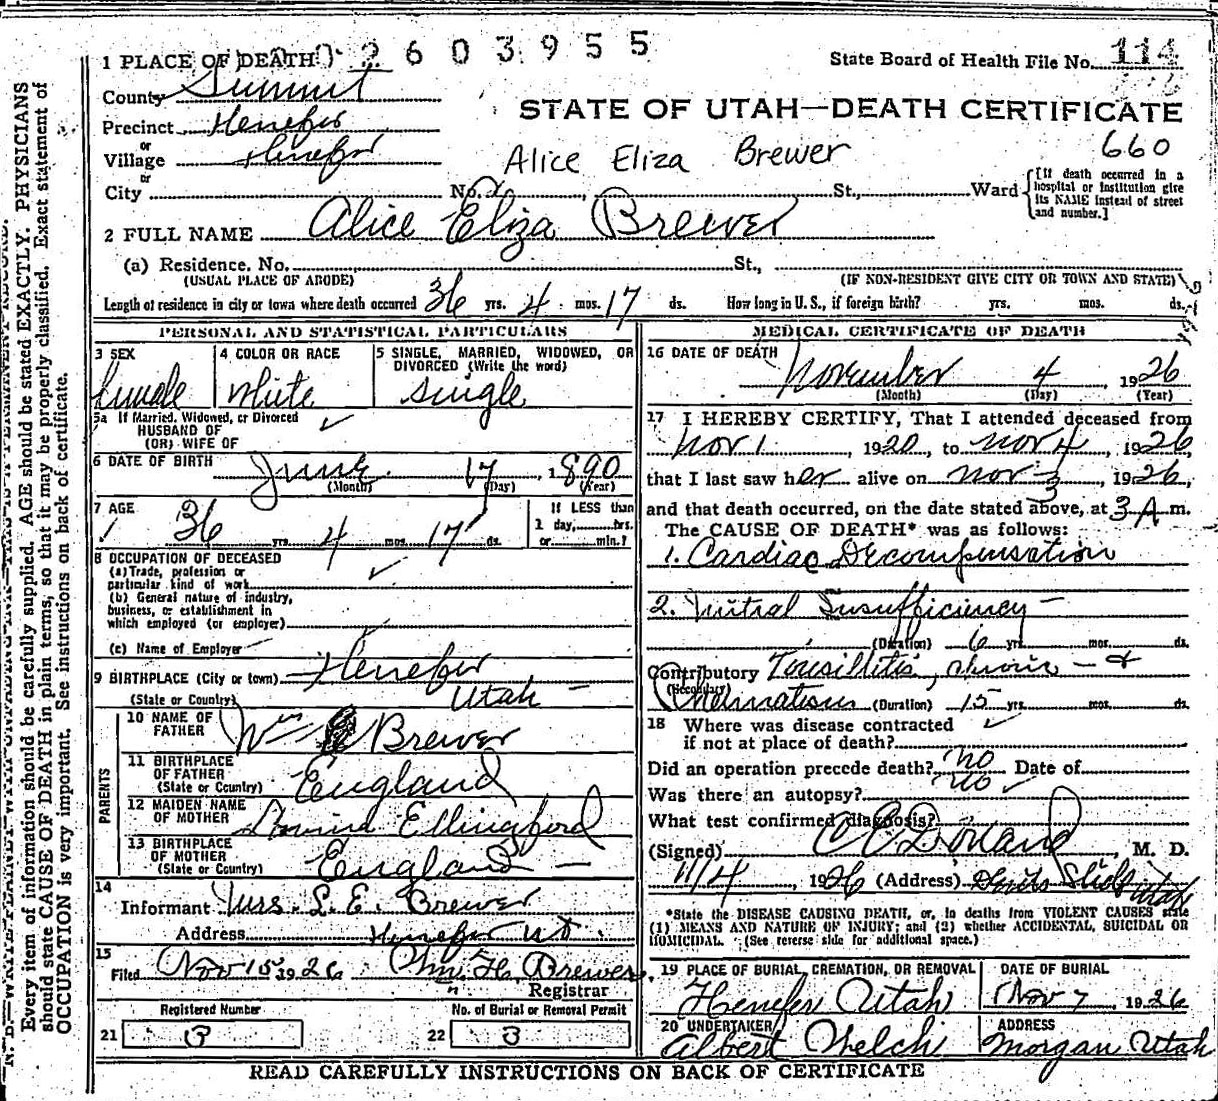 2603955
1 PLACE OF DEATH
State Board of Health File No. 114
County Summit
STATE OF UTAH—DEATH CERTIFICATE
Precinct Henefer
or
Village Henefer
Alice Eliza Brewer
660
or
City No. St., Ward
[If death occurred in a hospital or institution give its NAME instead of street and number.]
2 FULL NAME Alice Eliza Brewer
(a) Residence. No. St.,
(USUAL PLACE OF ABODE)
(IF NON-RESIDENT GIVE CITY OR TOWN AND STATE)
Length of residence in city or town where death occurred 36 yrs. 4 mos. 17 ds. How long in U. S., if foreign birth? yrs. mos. ds.
PERSONAL AND STATISTICAL PARTICULARS
3 SEX
female
4 COLOR OR RACE
White
5 SINGLE, MARRIED, WIDOWED, OR
DIVORCED (Write the word)
single
5a If Married, Widowed, or Divorced
HUSBAND OF
(OR) WIFE OF
6 DATE OF BIRTH June 17, 1890
(Month) (Day) (Year)
7 AGE
36 yrs. 4 mos. 17 ds.
If LESS than
1 day, hrs.
or min.?
8 OCCUPATION OF DECEASED
(a) Trade, profession or
particular kind of work
(b) General nature of industry,
business, or establishment in
which employed (or employer)
(c) Name of Employer
9 BIRTHPLACE (City or town) Henefer
(State or Country) Utah
PARENTS
10 NAME OF
FATHER Wm Brewer
11 BIRTHPLACE
OF FATHER
(State or Country) England
12 MAIDEN NAME
OF MOTHER Ellingford
13 BIRTHPLACE
OF MOTHER
(State or Country) England
14
Informant Mrs. L. E. Brewer
Address Henefer Ut.
15
Filed Nov 15 1926 H. Brewer
Registrar
Registered Number
21 8
No. of Burial or Removal Permit
22 8
MEDICAL CERTIFICATE OF DEATH
16 DATE OF DEATH
November 4, 1926
(Month) (Day) (Year)
17 I HEREBY CERTIFY, That I attended deceased from
Nov 1, 1920, to Nov 4, 1926,
that I last saw her alive on Nov 3, 1926,
and that death occurred, on the date stated above, at 3 A m.
The CAUSE OF DEATH* was as follows:
1. Cardiac Decompensation
2. Mitral Insufficiency
(Duration) 6 yrs. mos. ds.
Contributory Tonsillitis, chronic - &
(Secondary) Rheumatism (Duration) 15 yrs. mos. ds.
18 Where was disease contracted
if not at place of death?
Did an operation precede death? no Date of
Was there an autopsy? no
What test confirmed diagnosis?
(Signed) M. D.
11/4, 1926 (Address) Utah
*State the DISEASE CAUSING DEATH, or, in deaths from VIOLENT CAUSES state
(1) MEANS AND NATURE OF INJURY; and (2) whether ACCIDENTAL, SUICIDAL OR
HOMICIDAL. (See reverse side for additional space.)
19 PLACE OF BURIAL, CREMATION, OR REMOVAL
Henefer Utah
DATE OF BURIAL
Nov 7 1926
20 UNDERTAKER
Albert Welch
ADDRESS
Morgan Utah
READ CAREFULLY INSTRUCTIONS ON BACK OF CERTIFICATE
Every item of information should be carefully supplied. AGE should be stated EXACTLY. PHYSICIANS
should state CAUSE OF DEATH in plain terms, so that it may be properly classified. Exact statement of
OCCUPATION is very important. See instructions on back of certificate.